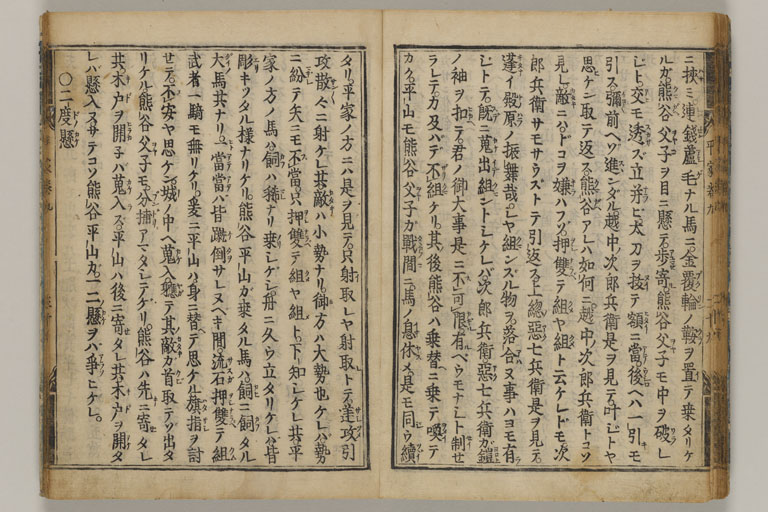 ニ挾ミ連錢蘆毛ナル馬ニ金覆輪ノ鞍ヲ置テ乗タリケ
ルガ熊谷父子ヲ目ニ懸テ歩寄熊谷父子モ中ヲ破レ
ジト交モ透ズ立并ビ太刀ヲ抜テ額ニ當後ヘハ一引モ
引ズ彌前ヘゾ進ンダル越中次郎兵衛是ヲ見テ叶ジトヤ
思ケン取テ返ス熊谷アレハ如何ニ越中次郎兵衛トコソ
見レ敵ニハドコヲ嫌ハフゾ押雙テ組ヤ組ト云ケレドモ次
郎兵衛サモサウズトテ引返ス上総惡七兵衛是ヲ見テ
蓬イ殿原ノ振舞哉シヤ組ンズル物ヲ落合ヌ事ハヨモ有
ジトテ既ニ蒐出組ントシケレバ次郎兵衛惡七兵衛ガ鎧
ノ袖ヲ扣テ君ノ御大事是ニ不可限有ベウモナシト制セ
ラレテ力及ハデ不組ケリ其後熊谷ハ乗替ニ乗テ喚テ
カク平山モ熊谷父子ガ戰間ニ馬ノ息休メ是モ同ウ續
タリ平家ノ方ニハ是ヲ見テ只射取レヤ射取トテ差攻引
攻散々ニ射ケレ共敵ハ小勢ナリ御方ハ大勢也ケレバ勢
ニ紛テ矢ニモ不當只押雙テ組ヤ組ト下知シケレ共平
家ノ方ノ馬ハ飼ハ稀ナリ乗シゲシ舟ニ久ウ立タリケレバ皆
彫キツタル様ナリケリ熊谷平山ガ乗タル馬ハ飼ニ飼タル
大馬共ナリ當當ハ皆蹴倒サレヌヘキ間流石押雙テ組
武者一騎モ無リケリ爰ニ平山ハ身ニ替テ思ケル旗指ヲ討
セテ不安ヤ思ケン城ノ中ヘ蒐入軈テ其敵ガ首取テゾ出タ
リケル熊谷父子モ分捕アマタシテケリ熊谷ハ先ニ寄タレ
共木戸ヲ開子バ蒐入ズ平山ハ後ニ寄タレ共木戸ヲ開タ
レバ懸入ヌサテコソ熊谷平山ガ一二懸ヲバ爭ヒケレ
〇二度懸